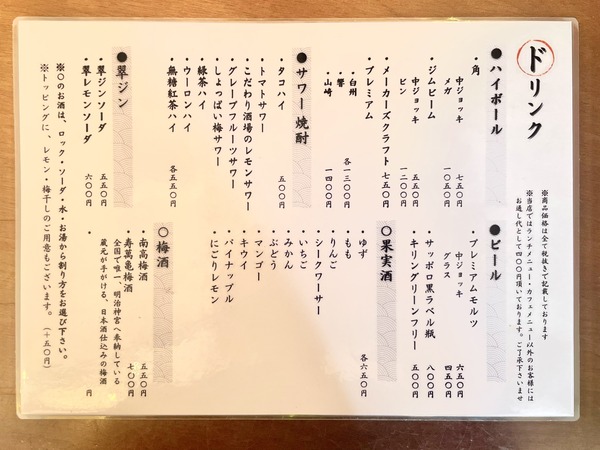 ドリンク
※商品価格は全て税抜きで記載しております
※当店ではランチメニュー・カフェメニュー以外のお客様には
お通し代として四〇〇円頂いております。ご了承下さいませ
●ハイボール
・角
中ジョッキ 七五〇円
メガ 一〇五〇円
・ジムビーム
中ジョッキ 五五〇円
ビン 一二〇〇円
・メーカーズクラフト 七五〇円
・プレミアム
・白州
・響 各一三〇〇円
・山崎 一四〇〇円
●サワー焼酎
・タコハイ 五〇〇円
・トマトサワー
・こだわり酒場のレモンサワー
・グレープフルーツサワー
・しょっぱい梅サワー
・緑茶ハイ
・ウーロンハイ
・無糖紅茶ハイ 各五五〇円
●翠ジン
・翠ジンソーダ 五五〇円
・翠レモンソーダ 六〇〇円
●ビール
・プレミアムモルツ
中ジョッキ 六五〇円
グラス 四五〇円
・サッポロ黒ラベル瓶 八〇〇円
・キリングリーンフリー 五〇〇円
〇果実酒
・ゆず 各六五〇円
・もも
・りんご
・シークワーサー
・いちご
・みかん
・ぶどう
・マンゴー
・キウイ
・パイナップル
・にごりレモン
〇梅酒
・南高梅酒 五五〇円
・寿萬亀梅酒 七〇〇円
全国で唯一、明治神宮へ奉納している
蔵元が手がける、日本酒仕込みの梅酒
・ 円
※〇のお酒は、ロック・ソーダ・水・お湯から割り方をお選び下さい。
※トッピングに、レモン・梅干しのご用意もございます。(+五〇円)